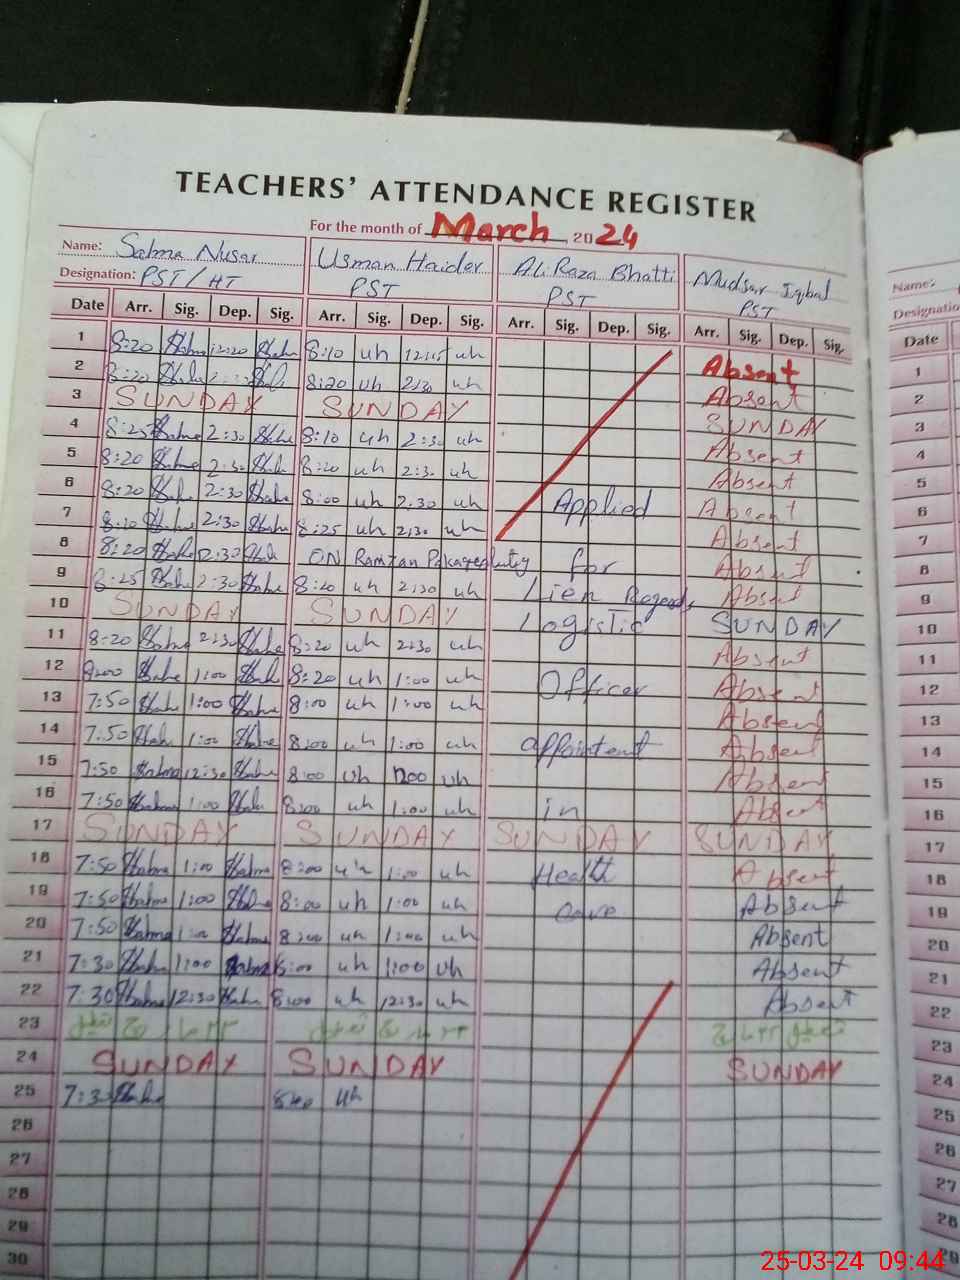 TEACHERS' ATTENDANCE REGISTER
For the month of March 2024
Name: Salma Nusar Usman Haider Ali Raza Bhatti Mudsar Iqbal Name:
Designation: PST/HT PST PST PST Designatio
Date Arr. Sig. Dep. Sig. Arr. Sig. Dep. Sig. Arr. Sig. Dep. Sig. Arr. Sig. Dep. Sig. Date
1 8:20 12:20 8:10 uh 12:15 uh Absent 1
2 8:20 8:20 uh 2:30 uh Absent 2
3 SUNDAY SUNDAY SUNDAY 3
4 8:25 2:30 8:10 uh 2:30 uh Absent 4
5 8:20 2:30 8:20 uh 2:30 uh Absent 5
6 8:20 2:30 8:00 uh 2:30 uh Applied Absent 6
7 8:20 2:30 8:25 uh 2:30 uh Absent 7
8 8:20 2:30 ON Ramzan for Absent 8
9 8:25 2:30 8:20 uh 2:30 uh Lien Absent 9
10 SUNDAY SUNDAY Logistic SUNDAY 10
11 8:20 2:30 8:20 uh 2:30 uh Absent 11
12 8:00 1:00 8:20 uh 1:00 uh Officer Absent 12
13 7:50 1:00 8:00 uh 1:00 uh Absent 13
14 7:50 1:00 8:00 uh 1:00 uh appointent Absent 14
15 7:50 Salma 12:30 8:00 uh 1200 uh Absent 15
16 7:50 1:00 8:00 uh 1:00 uh in Absent 16
17 SUNDAY SUNDAY SUNDAY SUNDAY 17
18 7:50 1:00 8:00 uh 1:00 uh Health Absent 18
19 7:50 1:00 8:00 uh 1:00 uh Care Absent 19
20 7:50 1:00 8:00 uh 1:00 uh Absent 20
21 7:30 1:00 8:00 uh 1:00 uh Absent 21
22 7:30 12:30 8:00 uh 12:30 uh Absent 22
23 ۲۳ مارچ تعطیل ۲۳ مارچ تعطیل ۲۳ مارچ تعطیل 23
24 SUNDAY SUNDAY SUNDAY 24
25 7:3 8:00 uh 25
26 26
27 27
28 28
29 29
30 30
25-03-24 09:44